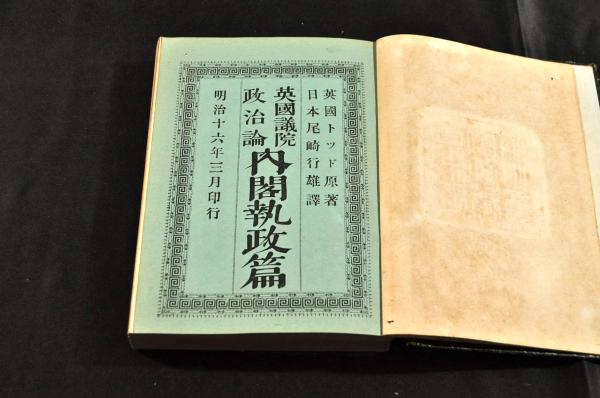 英國トッド原著
日本尾崎行雄譯
英國議院
政治論
內閣執政篇
明治十六年三月印行